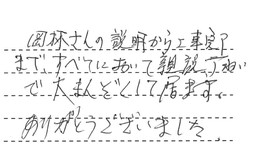 岡林さんの説明から工事完了
まで、すべてにおいて親切ていねい
で大まんぞくして居ます。
ありがとうございました